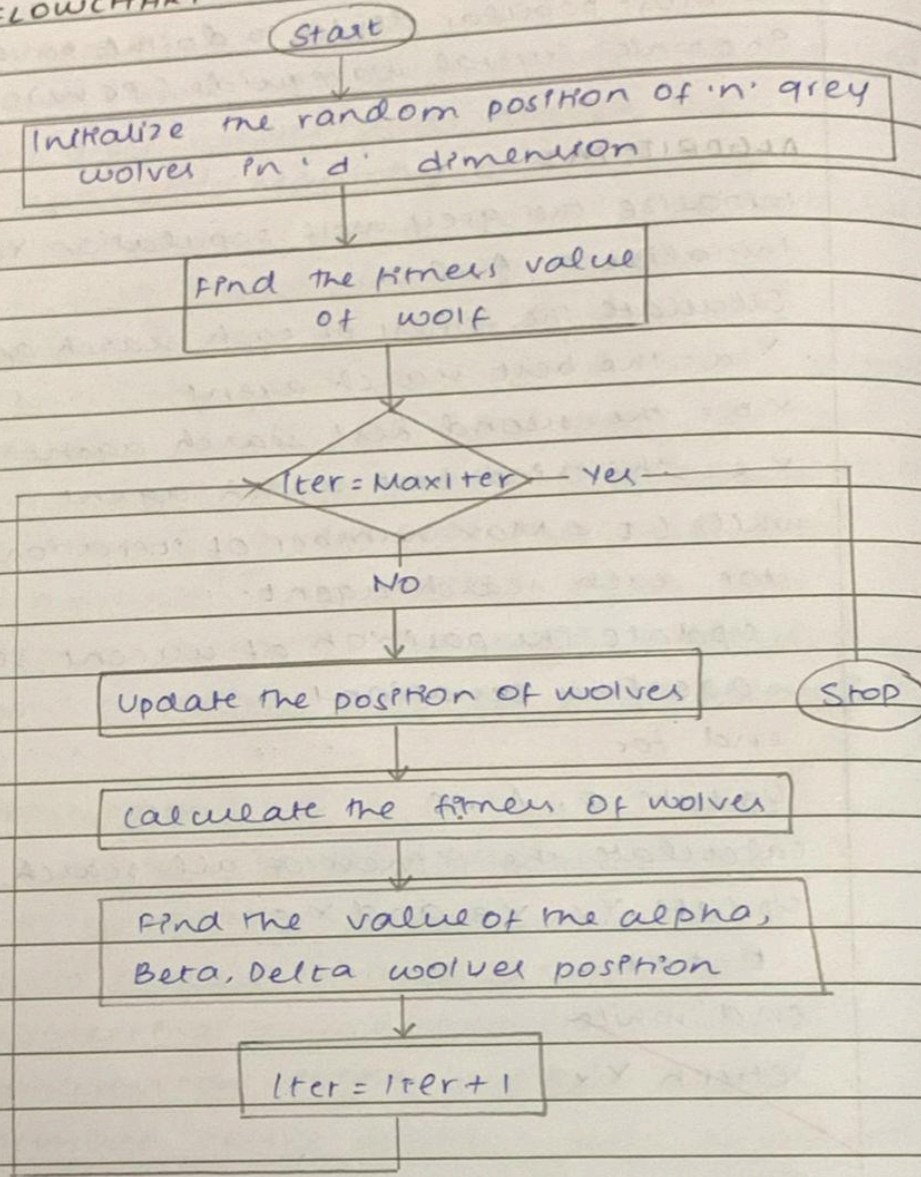 FLOWCHART
Start
Initialize the random position of 'n' grey
wolves in 'd' dimension
Find the fitness value
of wolf
Iter = Maxiter
Yes
NO
Update the position of wolves
Stop
Calculate the fitness of wolves
Find the value of the alpha,
Beta, Delta wolves position
Iter = Iter + 1